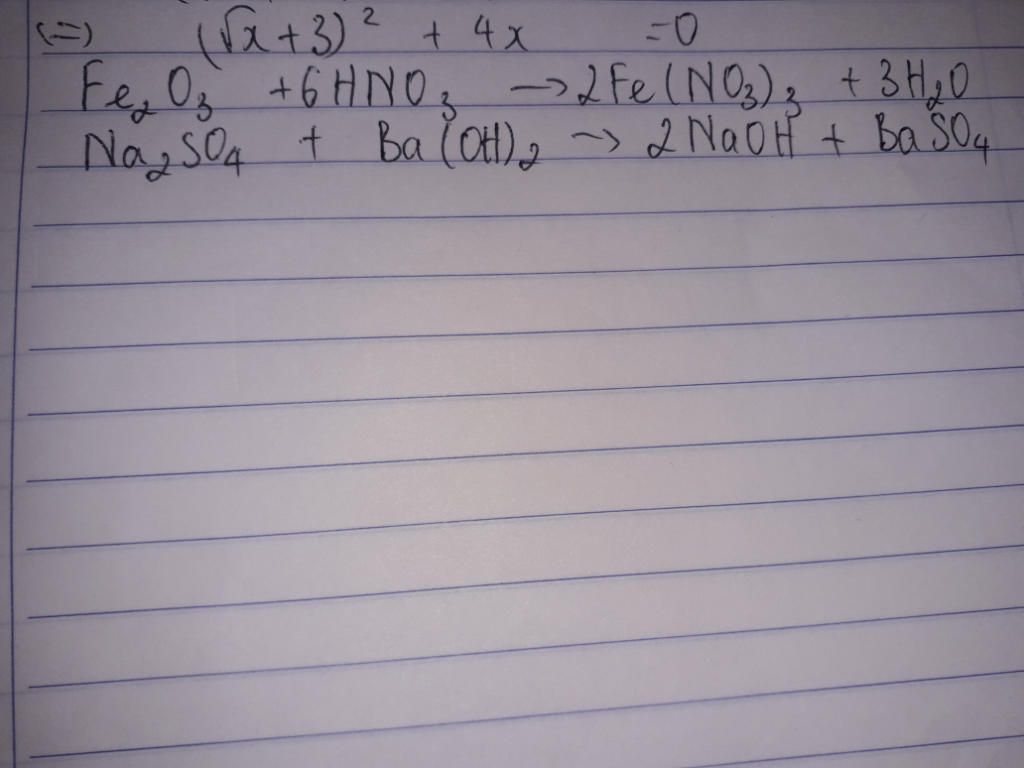 (=) (√x + 3)² + 4x = 0
Fe₂O₃ + 6HNO₃ → 2Fe(NO₃)₃ + 3H₂O
Na₂SO₄ + Ba(OH)₂ → 2NaOH + BaSO₄